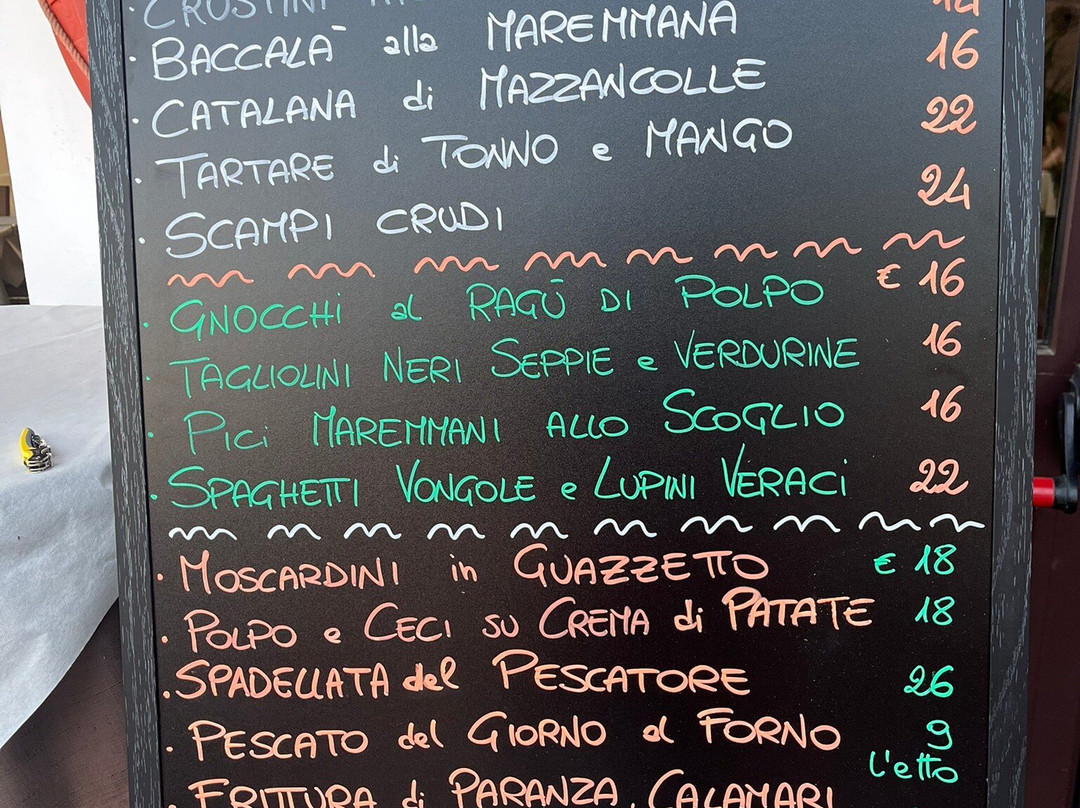 · CROSTINI
· BACCALÀ alla MAREMMANA 14
· CATALANA di MAZZANCOLLE 16
· TARTARE di TONNO e MANGO 22
· SCAMPI CRUDI 24
· GNOCCHI al RAGÙ DI POLPO € 16
· TAGLIOLINI NERI SEPPIE e VERDURINE 16
· PICI MAREMMANI ALLO SCOGLIO 16
· SPAGHETTI VONGOLE e LUPINI VERACI 22
· MOSCARDINI in GUAZZETTO € 18
· POLPO e CECI SU CREMA di PATATE 18
· SPADELLATA del PESCATORE 26
· PESCATO del GIORNO al FORNO 9
l'etto
· FRITTURA di PARANZA, CALAMARI